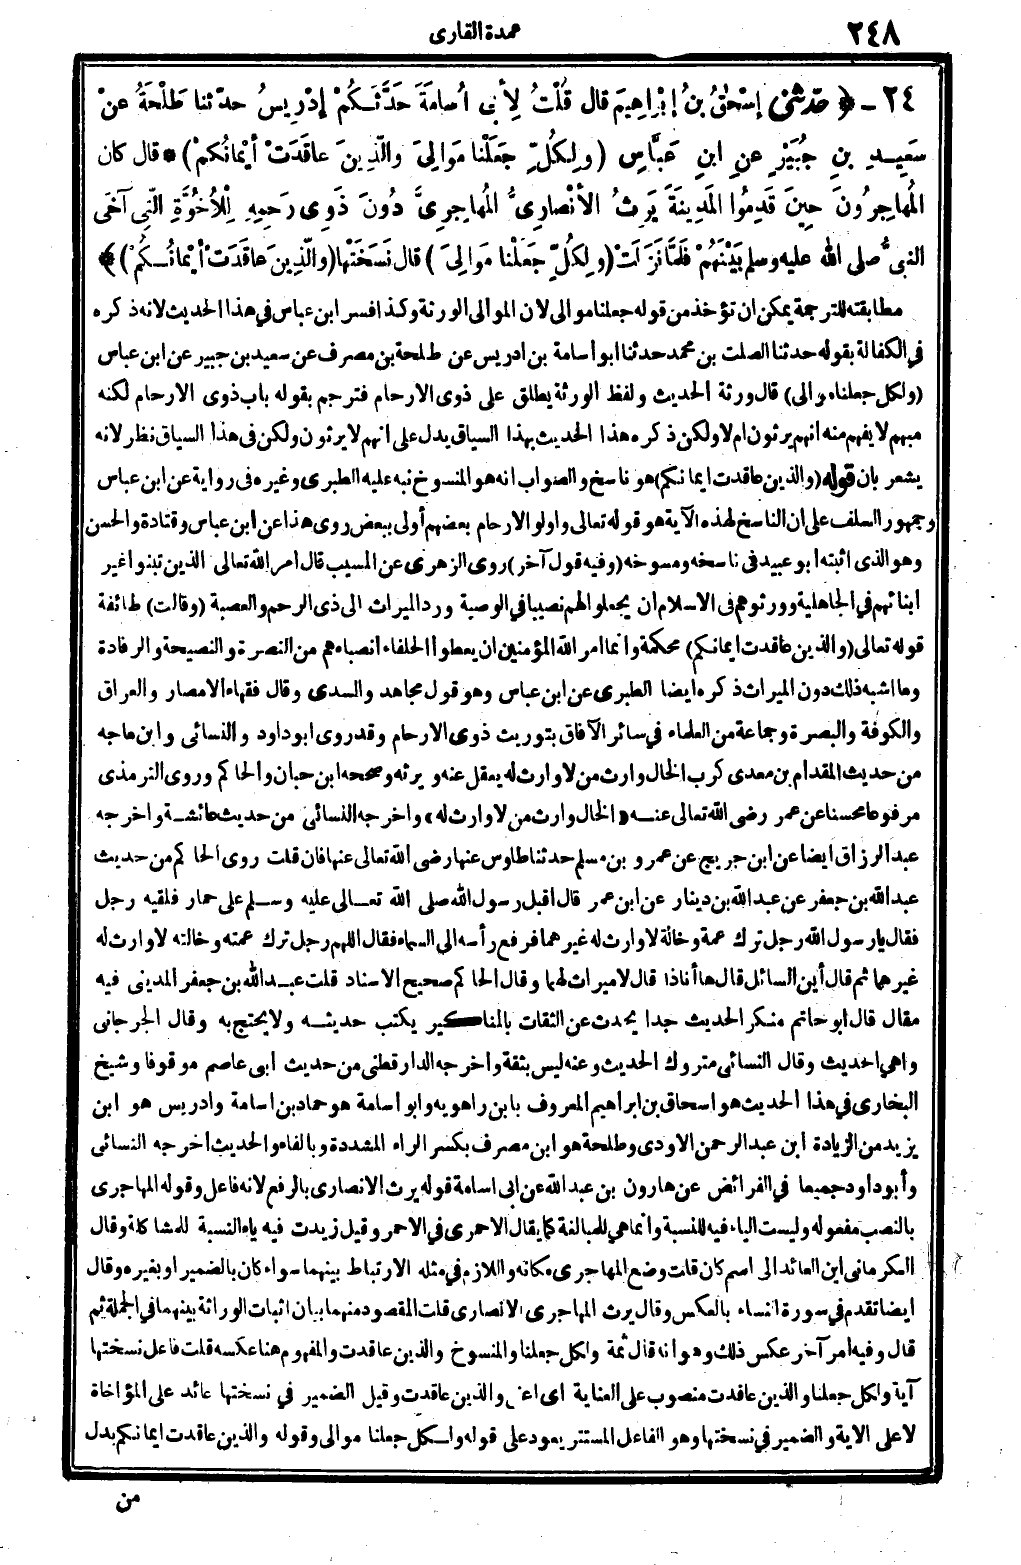 ٢٤٨
عمدة القارى
٢٤ - ﴿ حدّثنى إسْحٰقُ بنُ إبْرَاهِيمَ قال قُلْتُ لِأَبِى أسامَةَ حَدَّثَكُمْ إدْرِيسُ حدّثنا طَلْحَةُ عنْ
سَعِيدِ بنِ جُبَيْرٍ عنِ ابنِ عَبَّاسٍ (ولِكُلٍّ جَعَلْنا مَوَالِىَ والَّذِينَ عاقَدَتْ أيْمانُكمْ) * قال كان
المُهاجِرُونَ حِينَ قَدِمُوا المَدِينَةَ يَرِثُ الأنْصارِىُّ المُهاجِرِىَّ دُونَ ذَوِى رَحِمِهِ لِلْأُخُوَّةِ الَّتِى آخَى
النبىُّ صلى الله عليه وسلم بَيْنَهُمْ فَلَمَّا نَزَلَتْ (ولِكُلٍّ جعَلْنا مَوَالِىَ) قال نَسَخَتْها (والَّذِينَ عاقَدَتْ أيْمانُكُمْ) ﴾
مطابقته للترجمة يمكن ان تؤخذ من قوله جعلنا موالى لان الموالى الورثة وكذا فسر ابن عباس في هذا الحديث لانه ذكره
في الكفالة بقوله حدثنا الصلت بن محمد حدثنا ابو أسامة بن ادريس عن طلحة بن مصرف عن سعيد بن جبير عن ابن عباس
(ولكل جعلنا موالى) قال ورثة الحديث ولفظ الورثة يطلق على ذوى الارحام فترجم بقوله باب ذوى الارحام لكنه
مبهم لا يفهم منه انهم يرثون ام لا ولكن ذكره هذا الحديث بهذا السياق يدل على انهم لا يرثون ولكن فى هذا السياق نظر لانه
يشعر بان قوله (والذين عاقدت ايمانكم) هو ناسخ والصواب انه هو المنسوخ نبه عليه الطبرى وغيره فى رواية عن ابن عباس
وجمهور السلف على ان الناسخ لهذه الآية هو قوله تعالى واولو الارحام بعضهم أولى ببعض روى هذا عن ابن عباس وقتادة والحسن
وهو الذى اثبته أبو عبيد فى ناسخه ومنسوخه (وفيه قول آخر) روى الزهرى عن المسيب قال امر الله تعالى الذين تبنوا غير
ابنائهم فى الجاهلية وورثوهم فى الاسلام أن يجعلوا لهم نصيبا في الوصية ورد الميراث الى ذى الرحم والعصبة (وقالت) طائفة
قوله تعالى (والذين عاقدت ايمانكم) محكمة وانما امر الله المؤمنين ان يعطوا الحلفاء انصباءهم من النصرة والنصيحة والرفادة
وما اشبه ذلك دون الميراث ذكره ايضا الطبرى عن ابن عباس وهو قول مجاهد والسدى وقال فقهاء الامصار والعراق
والكوفة والبصرة وجماعة من العلماء في سائر الآفاق بتوريث ذوى الارحام وقد روى ابو داود والنسائى وابن ماجه
من حديث المقدام بن معدى كرب الخال وارث من لا وارث له يعقل عنه ويرثه وصححه ابن حبان والحاكم وروى الترمذى
مرفوعا محسنا عن عمر رضى الله تعالى عنه «الخال وارث من لا وارث له» واخرجه النسائى من حديث عائشة واخرجه
عبد الرزاق ايضا عن ابن جريج عن عمرو بن مسلم حدثنا طاوس عنها رضى الله تعالى عنها فان قلت روى الحاكم من حديث
عبد الله بن جعفر عن عبد الله بن دينار عن ابن عمر قال اقبل رسول الله صلى الله تعالى عليه وسلم على حمار فلقيه رجل
فقال يارسول الله رجل ترك عمة وخالة لا وارث له غيرهما فرفع رأسه الى السماء فقال اللهم رجل ترك عمته وخالته لا وارث له
غيرهما ثم قال أين السائل قال ها أنا ذا قال لا ميراث لهما وقال الحاكم صحيح الاسناد قلت عبد الله بن جعفر المدينى فيه
مقال قال ابو حاتم منكر الحديث جدا يحدث عن الثقات بالمناكير يكتب حديثه ولا يحتج به وقال الجرجانى
واهي الحديث وقال النسائى متروك الحديث وعنه ليس بثقة واخرجه الدارقطنى من حديث ابى عاصم موقوفا وشيخ
البخارى في هذا الحديث هو اسحاق بن ابراهيم المعروف بابن راهويه وابو اسامة هو حماد بن اسامة وادريس هو ابن
يزيد من الزيادة ابن عبد الرحمن الاودى وطلحة هو ابن مصرف بكسر الراء المشددة وبالفاء والحديث أخرجه النسائى
وأبو داود جميعا في الفرائض عن هارون بن عبد الله عن ابى اسامة قوله يرث الانصارى بالرفع لانه فاعل وقوله المهاجرى
بالنصب مفعوله وليست الياء فيه للنسبة وانما هي للمبالغة كما يقال الاحمرى في الاحمر وقيل زيدت فيه ياء النسبة للمشاكلة وقال
الكرمانى اين العائد الى اسم كان قلت وضع المهاجرى مكانه واللازم في مثله الارتباط بينهما سواء كان بالضمير او بغيره وقال
ايضا تقدم في سورة النساء بالعكس وقال يرث المهاجرى الانصارى قلت المقصود منهما بيان اثبات الوراثة بينهما في الجملة ثم
قال وفيه أمر آخر عكس ذلك وهو انه قال ثمة ولكل جعلنا والمنسوخ والذين عاقدت والمفهوم هنا عكسه قلت فاعل نسختها
آية ولكل جعلنا والذين عاقدت منصوب على العناية اى اعنى والذين عاقدت وقيل الضمير في نسختها عائد على المؤاخاة
لا على الاية والضمير في نسختها وهو الفاعل المستتر يعود على قوله ولكل جعلنا موالى وقوله والذين عاقدت ايمانكم بدل
من